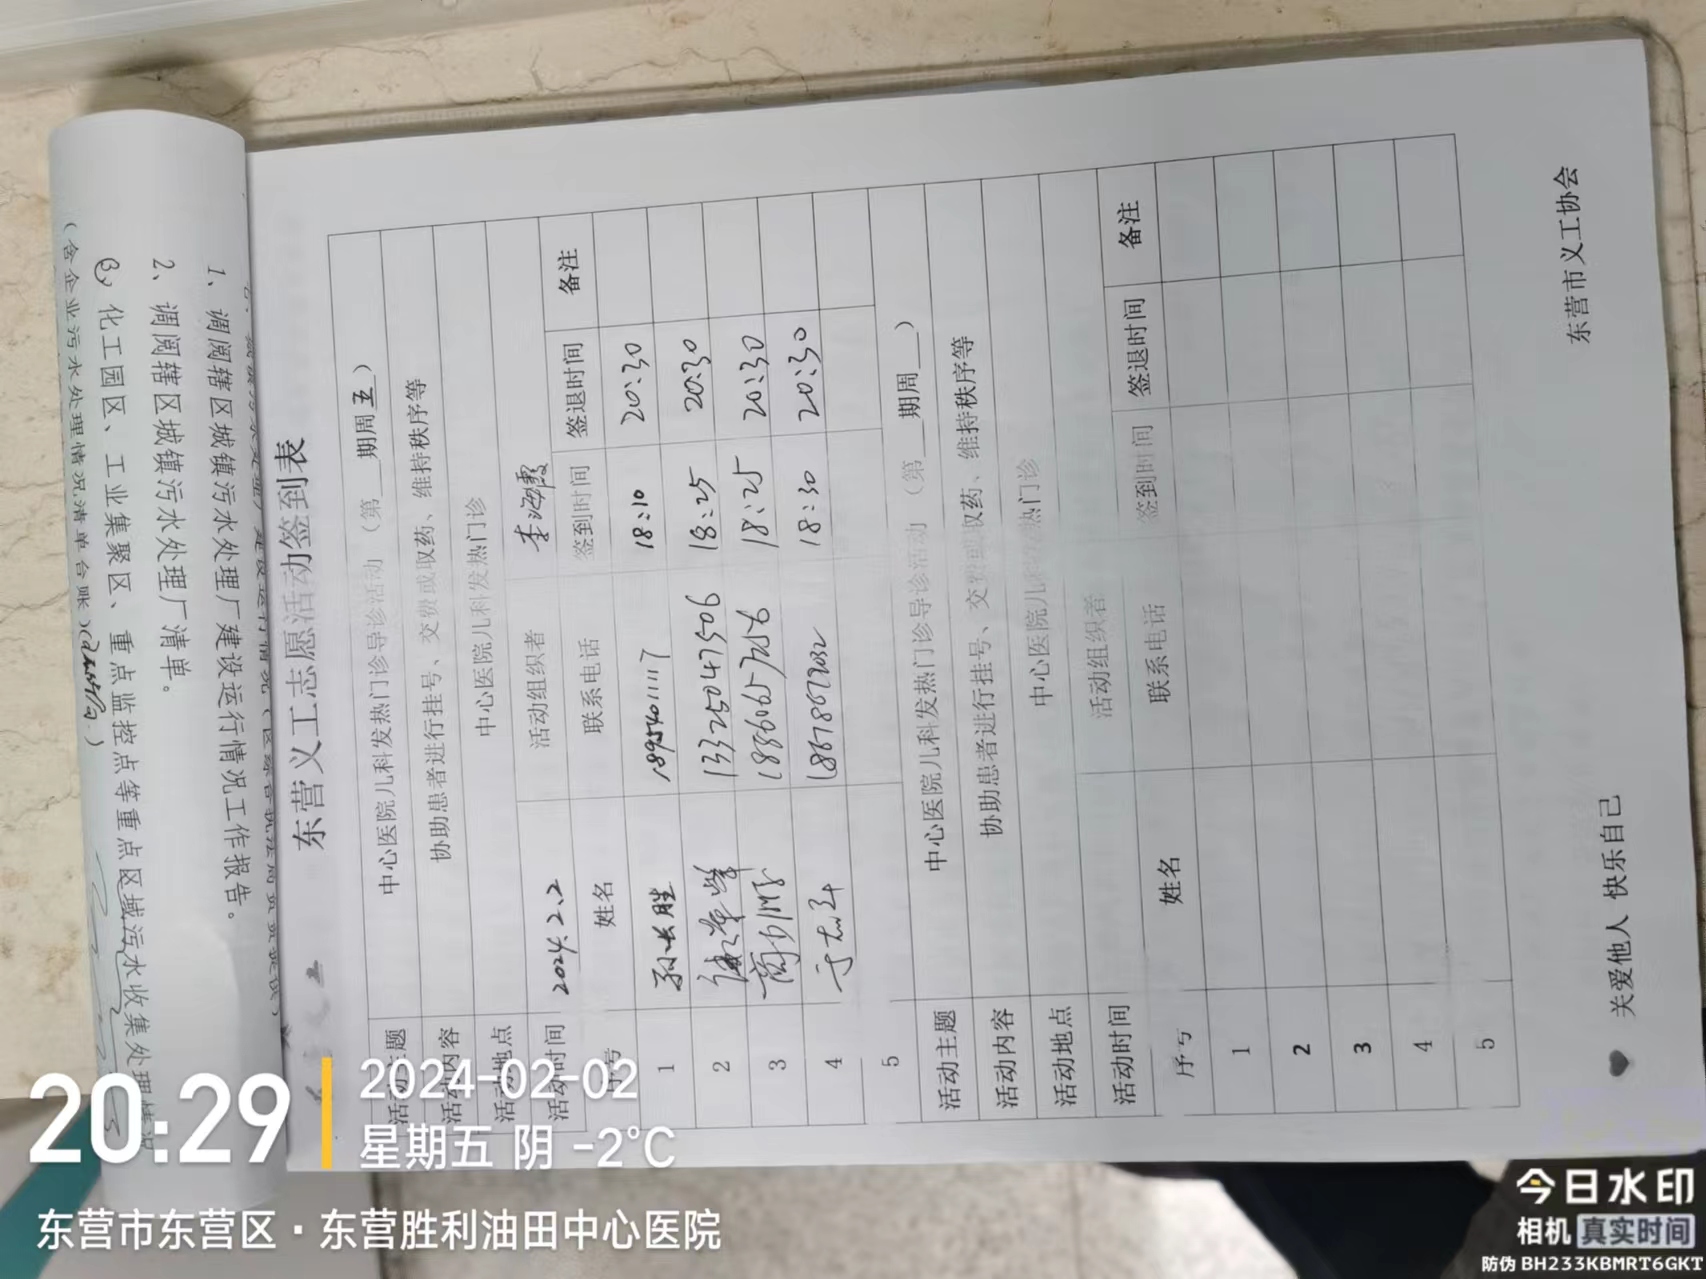 东营义工志愿活动签到表
活动主题 中心医院儿科发热门诊导诊活动（第__期周五）
活动内容 协助患者进行挂号、交费或取药、维持秩序等
活动地点 中心医院儿科发热门诊
活动时间 2024.2.2 活动组织者 李海霞
号 姓名 联系电话 签到时间 签退时间 备注
1 孙长胜 18954011117 18:10 20:30
2 13325047506 18:25 20:30
3 18:25 20:30
4 18:30 20:30
5
活动主题 中心医院儿科发热门诊导诊活动（第__期周__）
活动内容 协助患者进行挂号、交费或取药、维持秩序等
活动地点 中心医院儿科发热门诊
活动时间 活动组织者
序号 姓名 联系电话 签到时间 签退时间 备注
1
2
3
4
5
关爱他人 快乐自己
东营市义工协会
1、调阅辖区城镇污水处理厂建设运行情况工作报告。
2、调阅辖区城镇污水处理厂清单。
3、化工园区、工业集聚区、重点监控点等重点区域污水收集处理情况
（含企业污水处理情况清单台账）
20:29
2024-02-02
星期五 阴 -2℃
东营市东营区·东营胜利油田中心医院
今日水印
相机 真实时间
防伪 BH233KBMRT6GKT